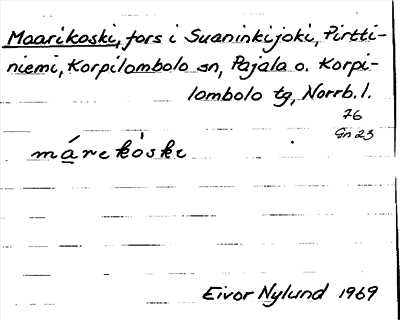 Maarikoski, fors i Suaninkijoki, Pirtti-
niemi, Korpilombolo sn, Pajala o. Korpi-
lombolo tg, Norrb. l.
76
Gn 23
márekòske
Eivor Nylund 1969